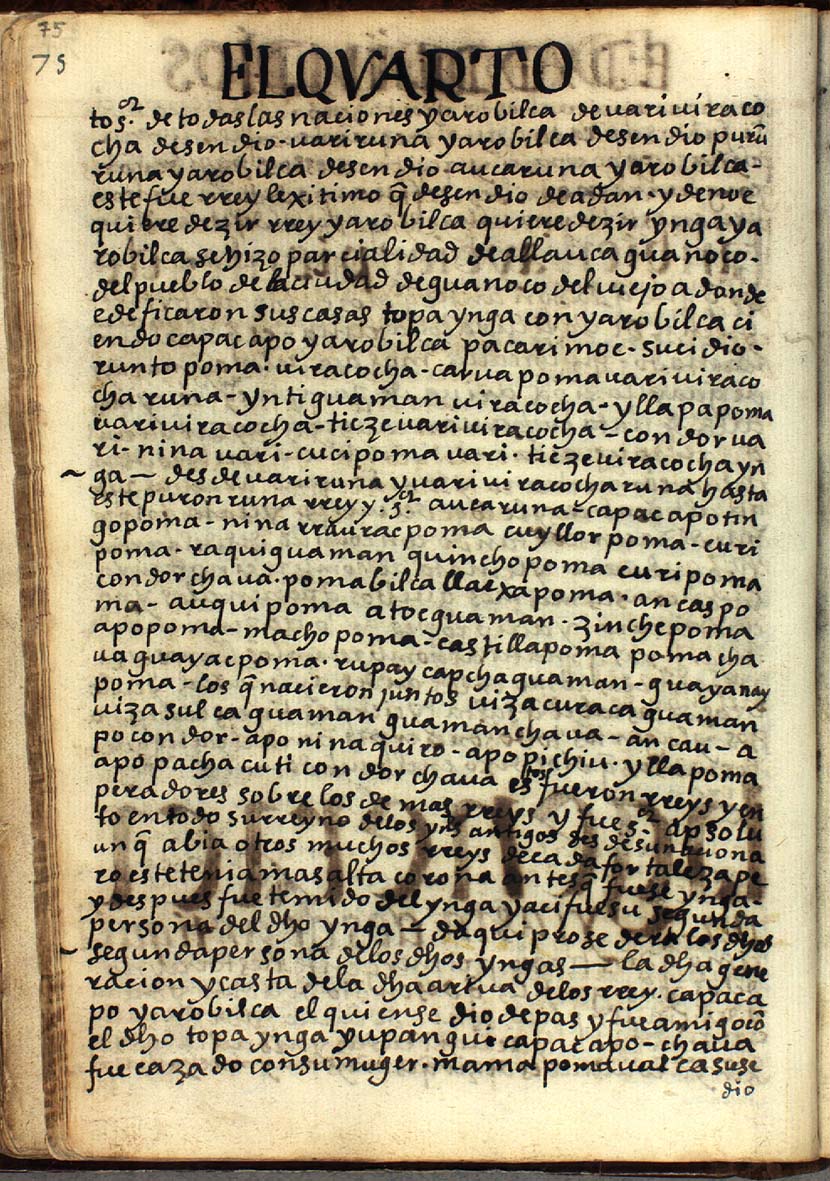 75
75
EL QVARTO
to s.or de todas las naciones yarobilca de uari uiraco
cha desendio - uari runa yarobilca desendio purũ
runa yarobilca desendio auca runa yarobilca -
este fue rrey lexitimo q̃ desendio de adan. y de noe
quiere dezir rrey yarobilca quiere dezir ynga ya
robilca se hizo parcialidad de allauca guanoco.
del pueblo de la ciudad de guanoco del uiejo adonde
edeficaron sus casas topa ynga con yarobilca ci
endo capac apo yarobilca pacarimoc. sucidio -
runto poma. uiracocha - carua poma uari uiraco
cha runa - ynti guaman uiracocha - yllapa poma
uari uiracocha - ticze uari uiracocha - condor ua
ri - nina uari - cuci poma uari. ticze uiracocha yn
~ ga — desde uari runa y uari uiracocha runa hasta
este puron runa rrey y s.or auca runa - capac apo tin
go poma - nina rraurac poma cuyllor poma - curi
poma - raqui guaman quincho poma curi poma
condor chaua. poma bilca llacxa poma. ancas po
ma - auqui poma atoc guaman. zinche poma
apo poma - macho poma - castilla poma poma cha
ua guayac poma. rupay capcha guaman - guayanay
poma - los q̃ nacieron juntos uiza curaca guaman
uiza sulca guaman guaman chaua - ancau - a
po condor - apo nina quiro - apo pichiu. yllapoma
apo pachacuti condor chaua estos fueron rreys y en
peradores sobre los demas rreys y fue s.or apsolu
to en todo su rreyno de los yns antigos des desunbuona
unq̃ abia otros muchos rreys de cada fortaleza pe
ro este tenia mas alta corona antes q̃ fuese ynga -
y despues fue temido del ynga y aci fue su segunda
persona del dho ynga — daqui prosedera los dhos
~ segunda persona de los dhos yngas — la dha gene
racion y casta de la dha arriua de los rrey. capac a
po yarobilca el quien se dio de pas y fue amigo cõ
el dho topa ynga yupanqui capac apo - chaua
fue cazado con su muger. mama poma ualca suse
dio